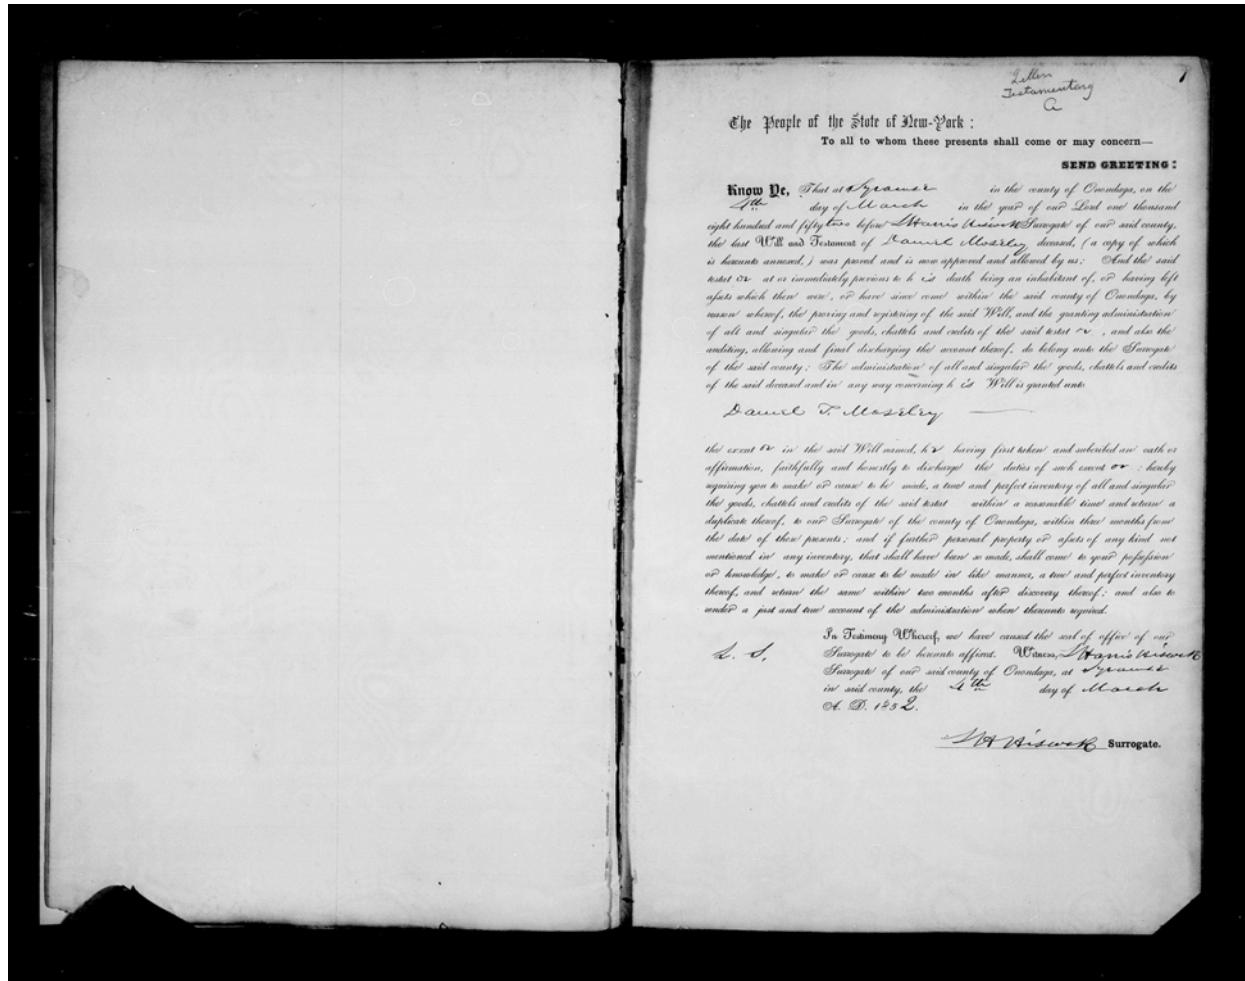 Letters
Testamentary
A
1
The People of the State of New-York :
To all to whom these presents shall come or may concern—
SEND GREETING:
Know Ye, That at Syracuse in the county of Onondaga, on the
4th day of March in the year of our Lord one thousand
eight hundred and fifty two before L Harris Hiscock Surrogate of our said county,
the last Will and Testament of Daniel Moseley deceased, (a copy of which
is hereunto annexed,) was proved and is now approved and allowed by us; And the said
testat or at or immediately previous to h is death being an inhabitant of, or having left
assets which then were, or have since come within the said county of Onondaga, by
reason whereof, the proving and registering of the said Will, and the granting administration
of all and singular the goods, chattels and credits of the said testat or , and also the
auditing, allowing and final discharging the account thereof, do belong unto the Surrogate
of the said county; The administration of all and singular the goods, chattels and credits
of the said deceased and in any way concerning h is Will is granted unto
Daniel T. Moseley
the execut or in the said Will named, he having first taken and subcribed an oath or
affirmation, faithfully and honestly to discharge the duties of such execut or ; hereby
requiring you to make or cause to be made, a true and perfect inventory of all and singular
the goods, chattels and credits of the said testat within a reasonable time and return a
duplicate thereof, to our Surrogate of the county of Onondaga, within three months from
the date of these presents; and if further personal property or assets of any kind not
mentioned in any inventory, that shall have been so made, shall come to your possession
or knowledge, to make or cause to be made in like manner, a true and perfect inventory
thereof, and return the same within two months after discovery thereof; and also to
render a just and true account of the administration when thereunto required.
In Testimony Whereof, we have caused the seal of office of our
L. S. Surrogate to be hereunto affixed. Witness, L Harris Hiscock
Surrogate of our said county of Onondaga, at Syracuse
in said county, the 4th day of March
A. D. 1852.
L H Hiscock Surrogate.